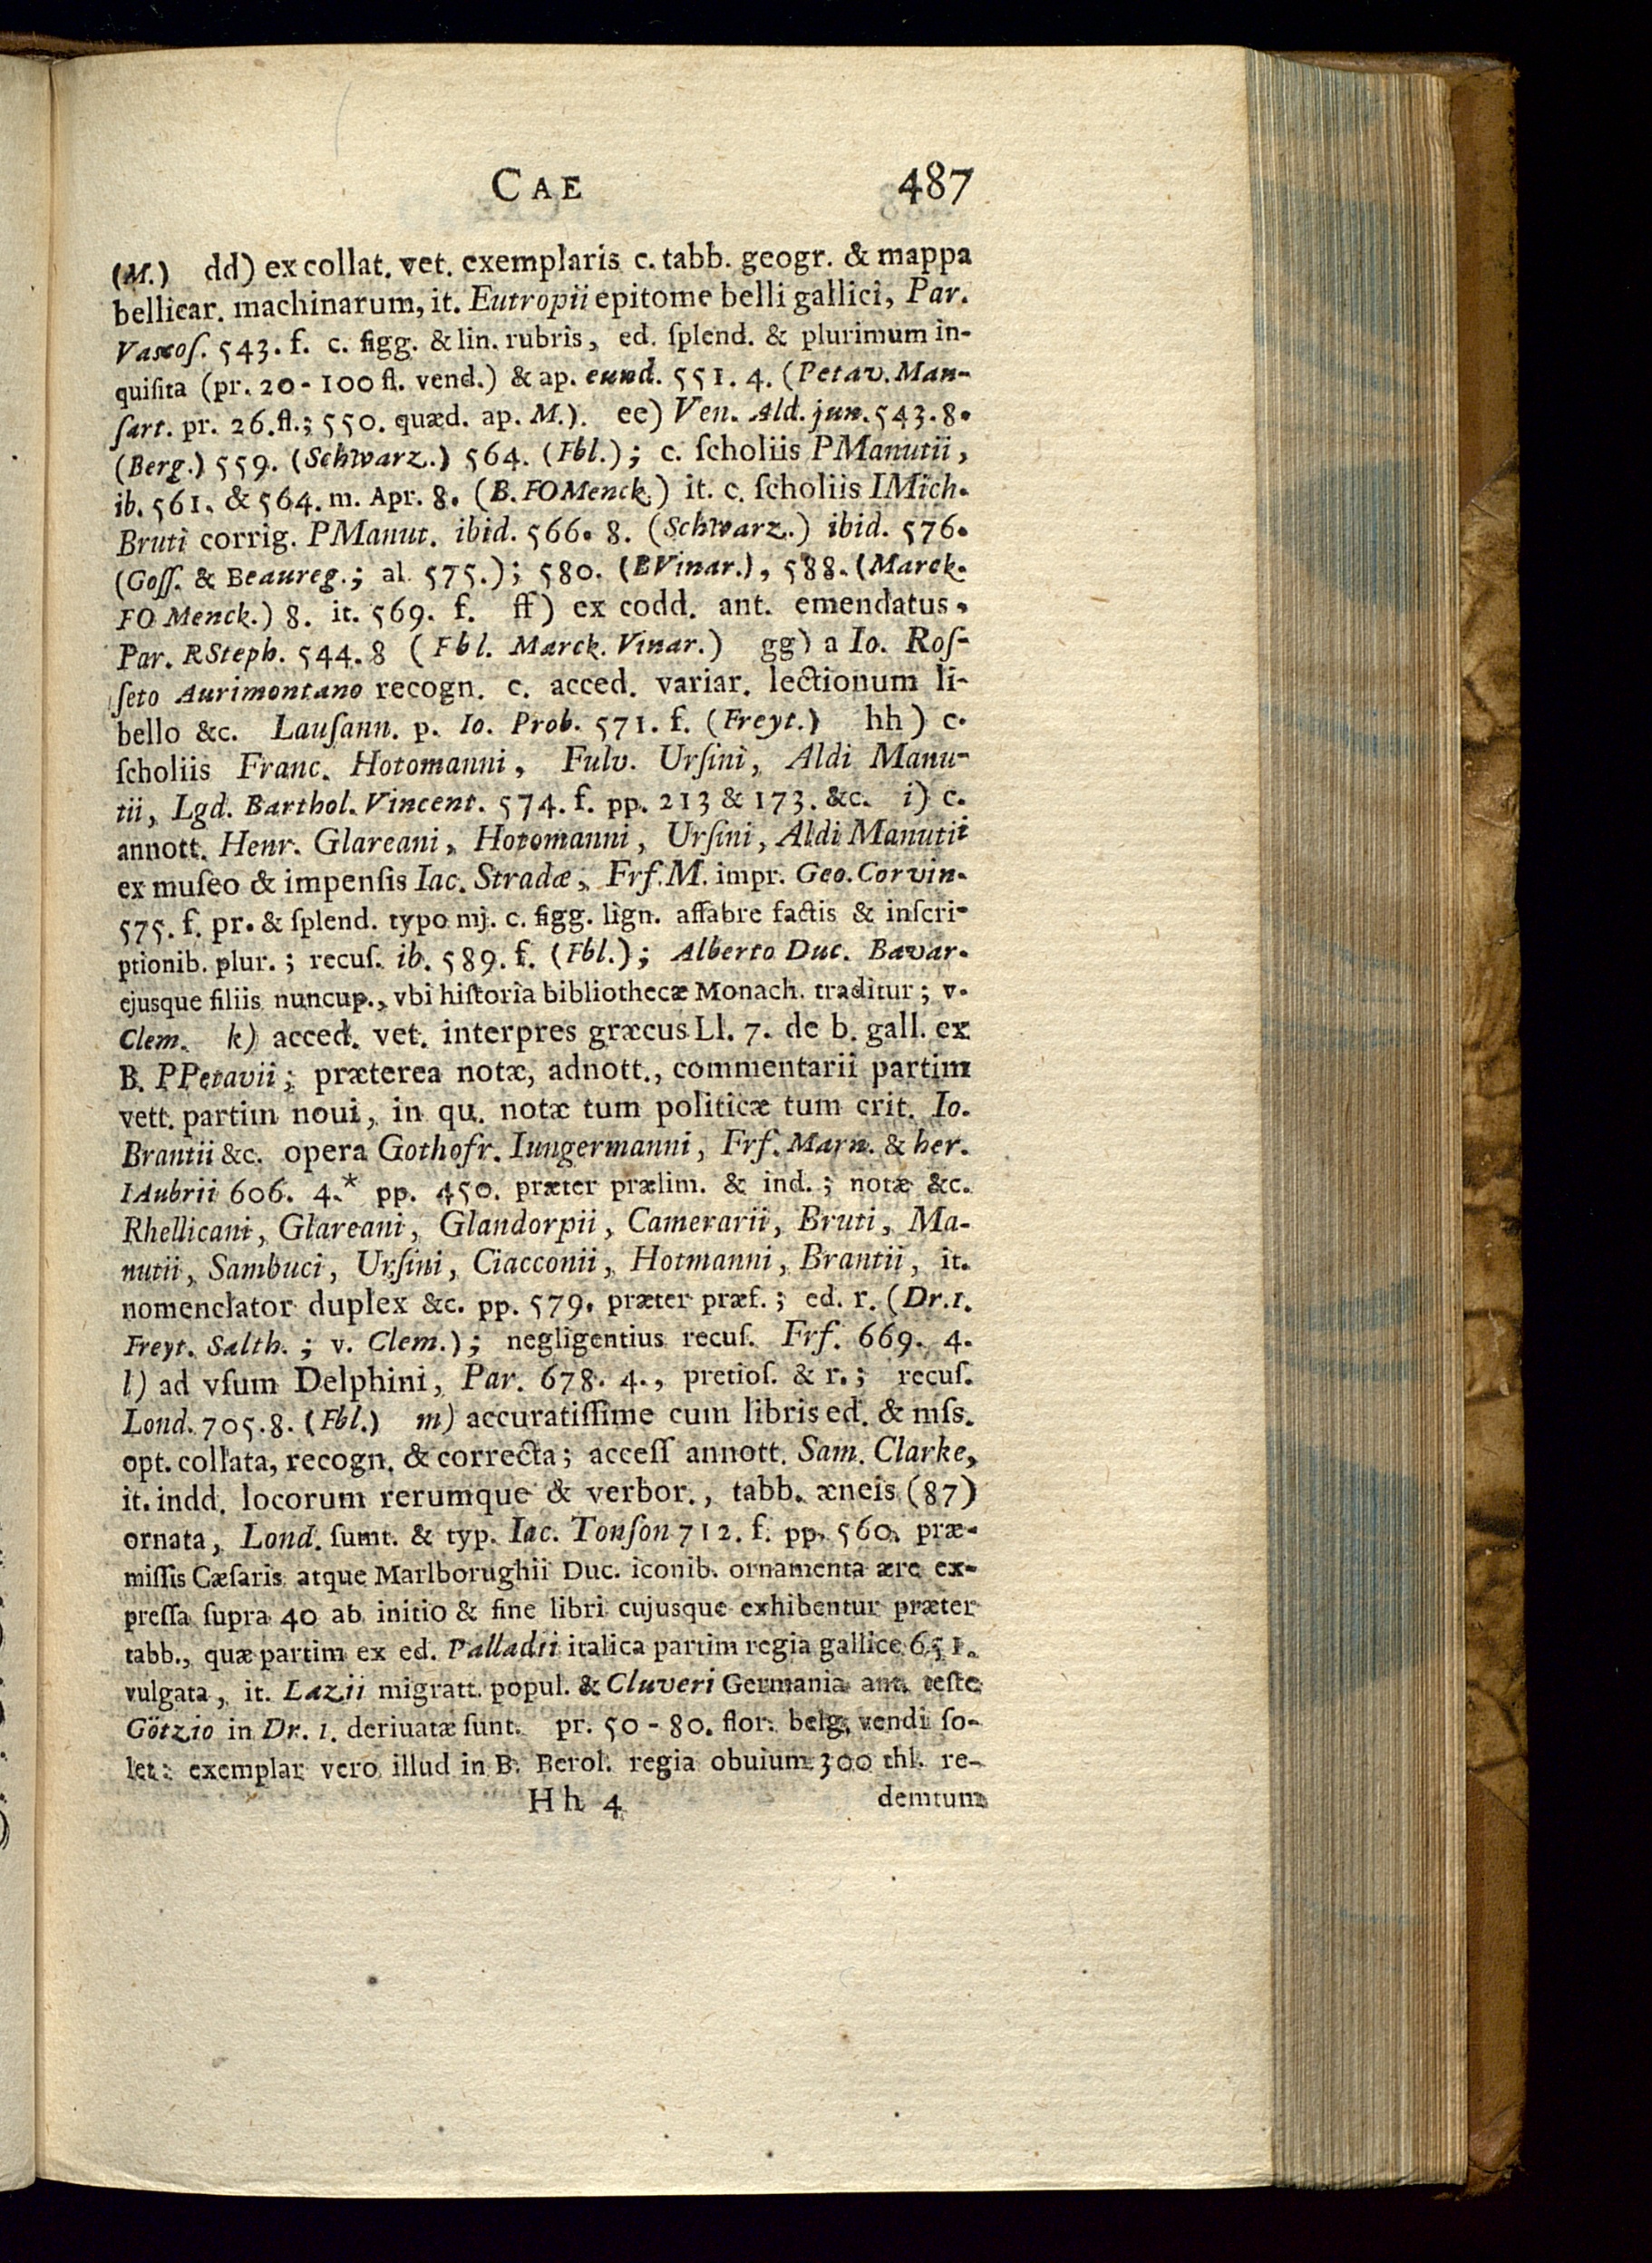 CAE 487
(M.) dd) ex collat. vet. exemplaris c. tabb. geogr. & mappa
bellicar. machinarum, it. Eutropii epitome belli gallici, Par.
Vascoſ. 543. f. c. figg. & lin. rubris, ed. ſplend. & plurimum in-
quiſita (pr. 20-100 fl. vend.) & ap. eund. 551. 4. (Petav. Man-
ſart. pr. 26. fl.; 550. quæd. ap. M.). ee) Ven. Ald. jun. 543. 8.
(Berg.) 559. (Schwarz.) 564. (Fbl.); c. ſcholiis PManutii,
ib. 561. & 564. m. Apr. 8. (B. FOMenck.) it. c. ſcholiis IMich.
Bruti corrig. PManut. ibid. 566. 8. (Schwarz.) ibid. 576.
(Goſſ. & Beaureg.; al. 575.); 580. (BVinar.), 588. (Marck.
FO Menck.) 8. it. 569. f. ff) ex codd. ant. emendatus,
Par. RSteph. 544. 8 (Fbl. Marck. Vinar.) gg) a Io. Roſ-
ſeto Aurimontano recogn. c. acced. variar. lectionum li-
bello &c. Lauſann. p. Io. Prob. 571. f. (Freyt.) hh) c.
ſcholiis Franc. Hotomanni, Fulv. Urſini, Aldi Manu-
tii, Lgd. Barthol. Vincent. 574. f. pp. 213 & 173. &c. i) c.
annott. Henr. Glareani, Hotomanni, Urſini, Aldi Manutii
ex muſeo & impenſis Iac. Stradæ, Frf. M. impr. Geo. Corvin.
575. f. pr. & ſplend. typo mj. c. figg. lign. affabre factis & inſcri-
ptionib. plur.; recuſ. ib. 589. f. (Fbl.); Alberto Duc. Bavar.
ejusque filiis nuncup., vbi hiſtoria bibliothecæ Monach. traditur; v.
Clem. k) acced. vet. interpres græcus Ll. 7. de b. gall. ex
B. PPetavii; præterea notæ, adnott., commentarii partim
vett. partim noui, in qu. notæ tum politicæ tum crit. Io.
Brantii &c. opera Gothofr. Iungermanni, Frf. Marn. & her.
IAubrii 606. 4.* pp. 450. præter prælim. & ind.; notæ &c.
Rhellicani, Glareani, Glandorpii, Camerarii, Bruti, Ma-
nutii, Sambuci, Urſini, Ciacconii, Hotmanni, Brantii, it.
nomenclator duplex &c. pp. 579. præter præf.; ed. r. (Dr. 1.
Freyt. Salth.; v. Clem.); negligentius recuſ. Frf. 669. 4.
l) ad vſum Delphini, Par. 678. 4., pretioſ. & r.; recuſ.
Lond. 705. 8. (Fbl.) m) accuratiſſime cum libris ed. & mſs.
opt. collata, recogn. & correcta; acceſſ annott. Sam. Clarke,
it. indd. locorum rerumque & verbor., tabb. æneis (87)
ornata, Lond. ſumt. & typ. Iac. Tonſon 712. f. pp. 560. præ-
miſſis Cæſaris atque Marlborughii Duc. iconib. ornamenta ære ex-
preſſa ſupra 40 ab initio & fine libri cujusque exhibentur præter
tabb., quæ partim ex ed. Palladii italica partim regia gallice 651.
vulgata, it. Lazii migratt. popul. & Cluveri Germania ant. teſte
Götzio in Dr. 1. deriuatæ ſunt. pr. 50-80. flor. belg. vendi ſo-
let: exemplar vero illud in B. Berol. regia obuium 300 thl. re-
Hh 4 demtum